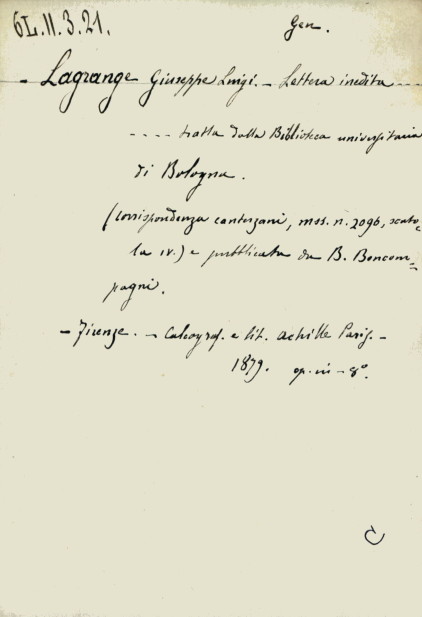 6L.II.3.21.
Gen.
Lagrange Giuseppe Luigi. — Lettera inedita
tratta dalla Biblioteca universitaria
di Bologna.
(Corrispondenza canterzani, mss. n. 2096, scato-
la IV.) e pubblicata da B. Boncom-
pagni.
— Firenze. — Calcograf. e lit. Achille Paris. —
1879. op. in-8°.
C